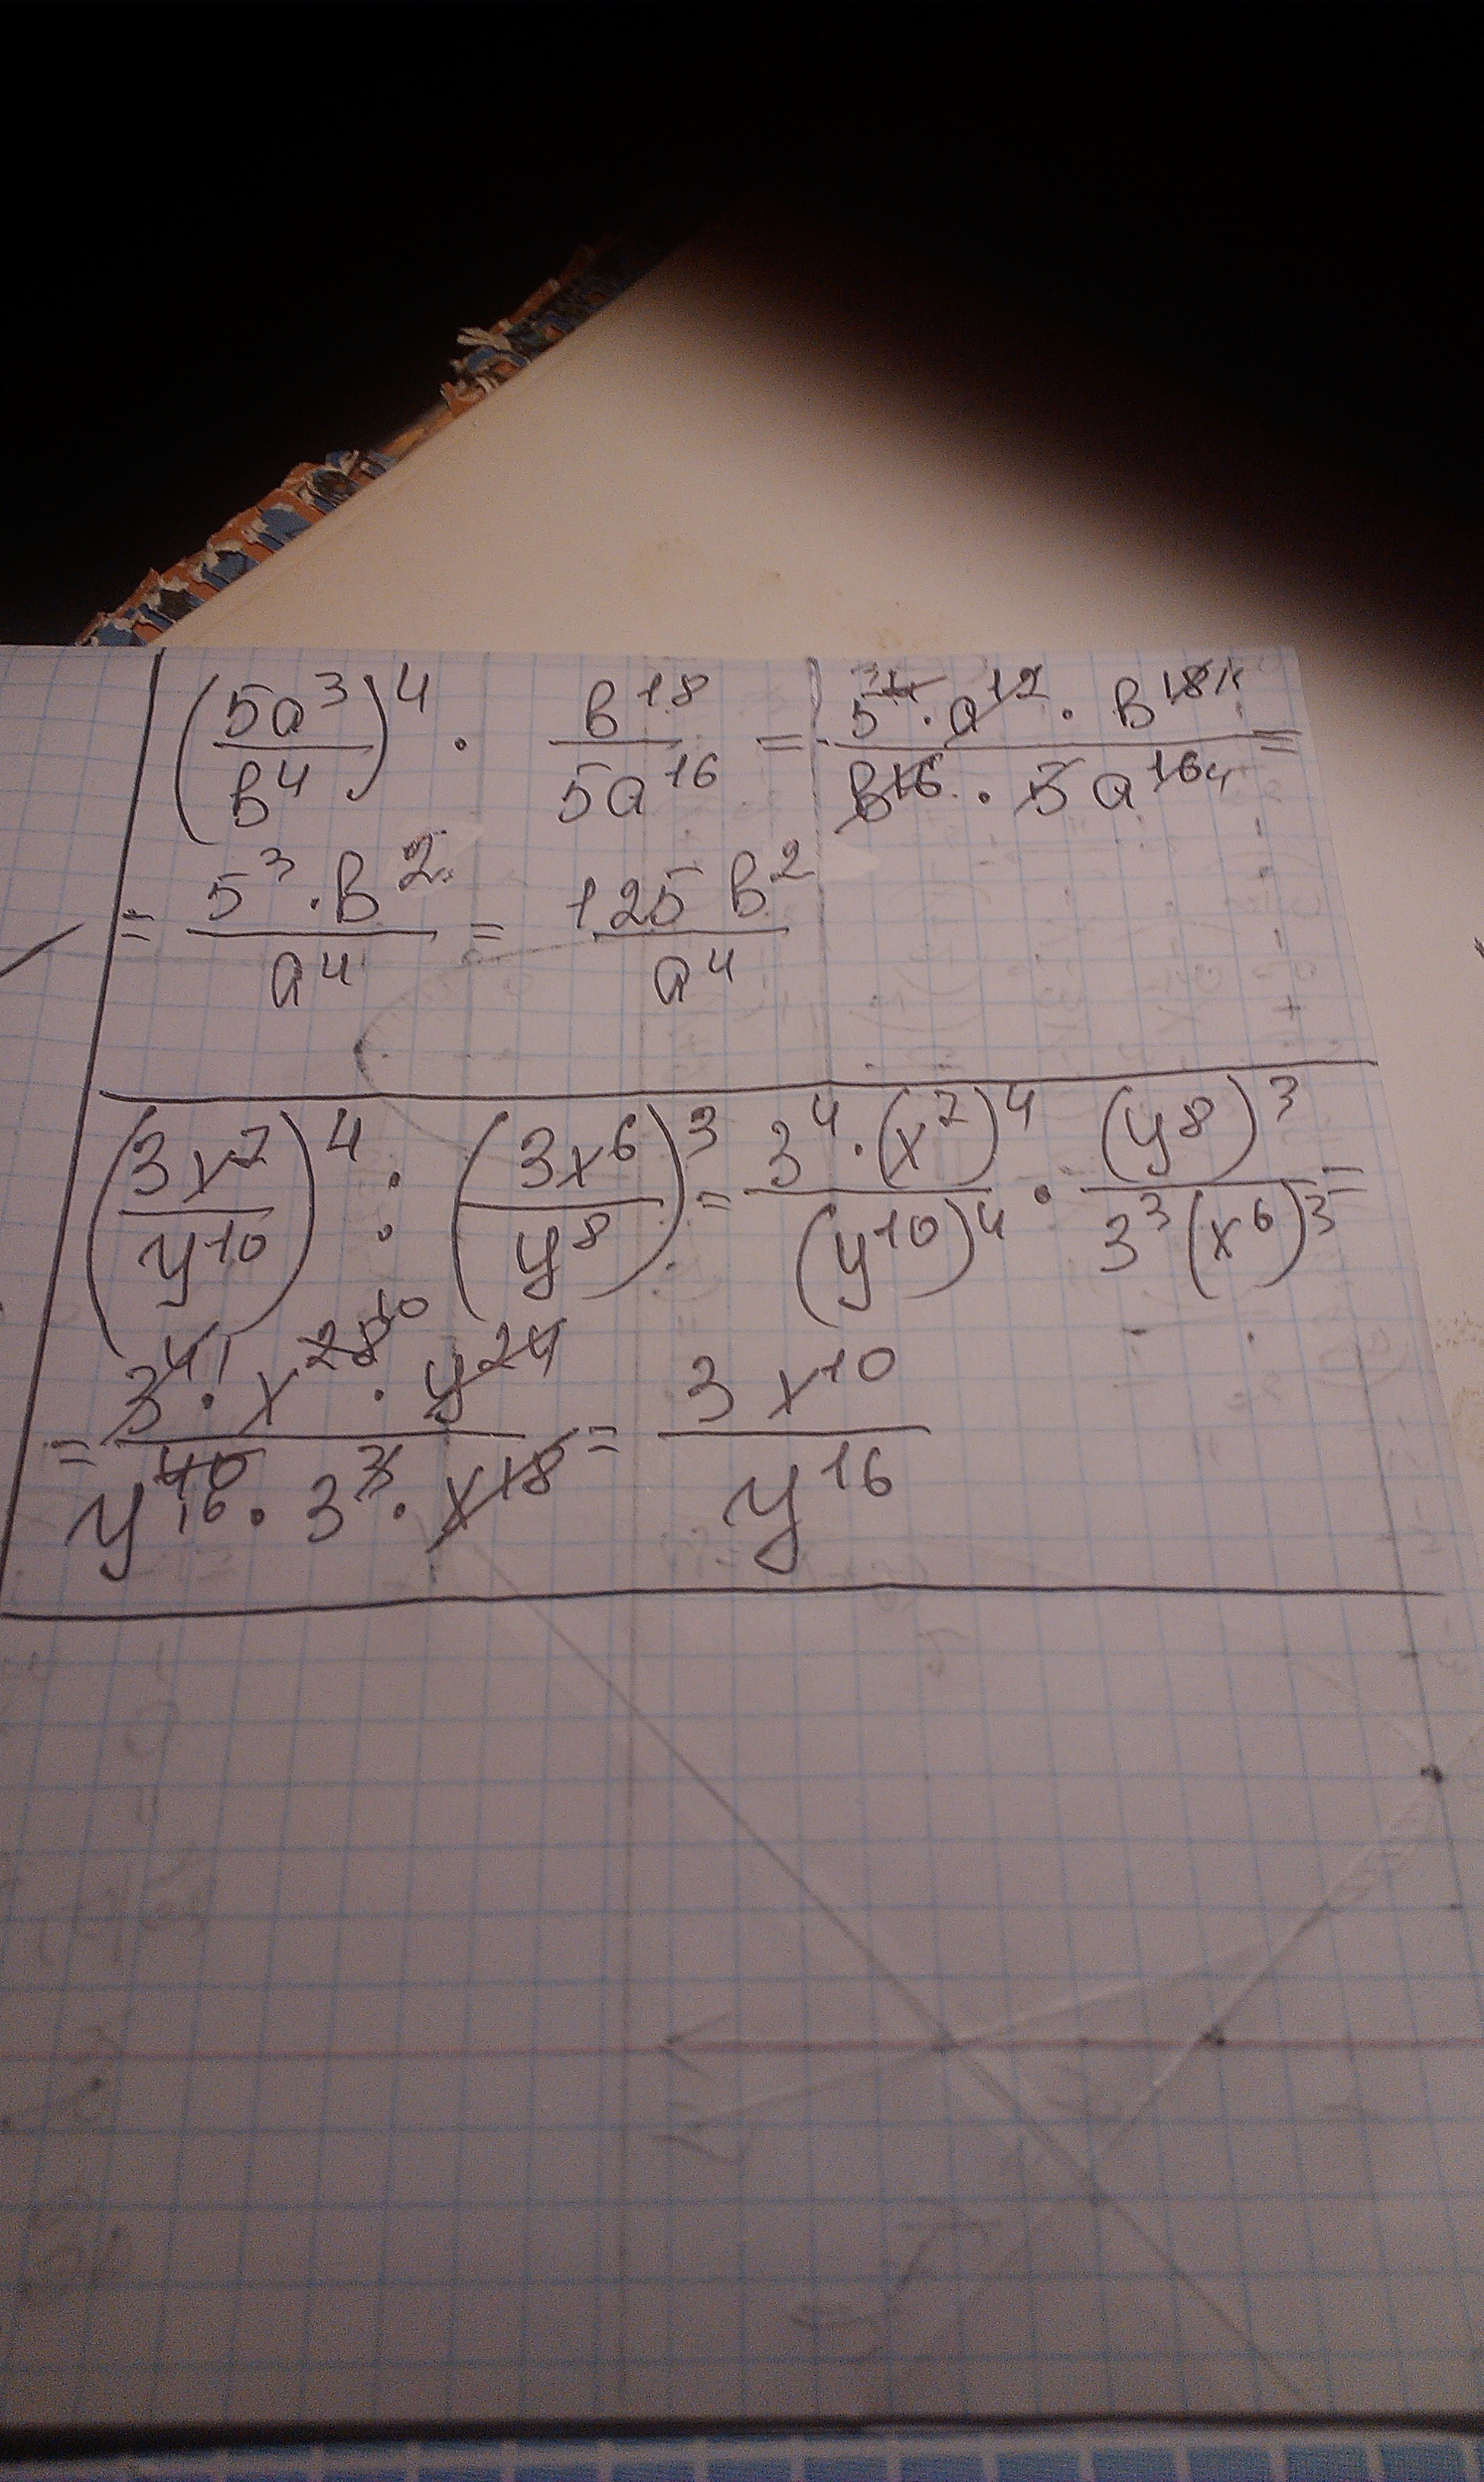 (5a³/b⁴)⁴ · b¹⁸/5a¹⁶ = 5⁴ ³ · a¹² · b¹⁸/b¹⁶ · 5a¹⁶ ⁴ =
= 5³ · b²/a⁴ = 125 b²/a⁴
(3x⁷/y¹⁰)⁴ : (3x⁶/y⁸)³ = 3⁴ · (x⁷)⁴/(y¹⁰)⁴ · (y⁸)³/3³(x⁶)³ =
= 3⁴ ¹ · x²⁸ ¹⁰ · y²⁴/y⁴⁰ ¹⁶ · 3³ · x¹⁸ = 3x¹⁰/y¹⁶